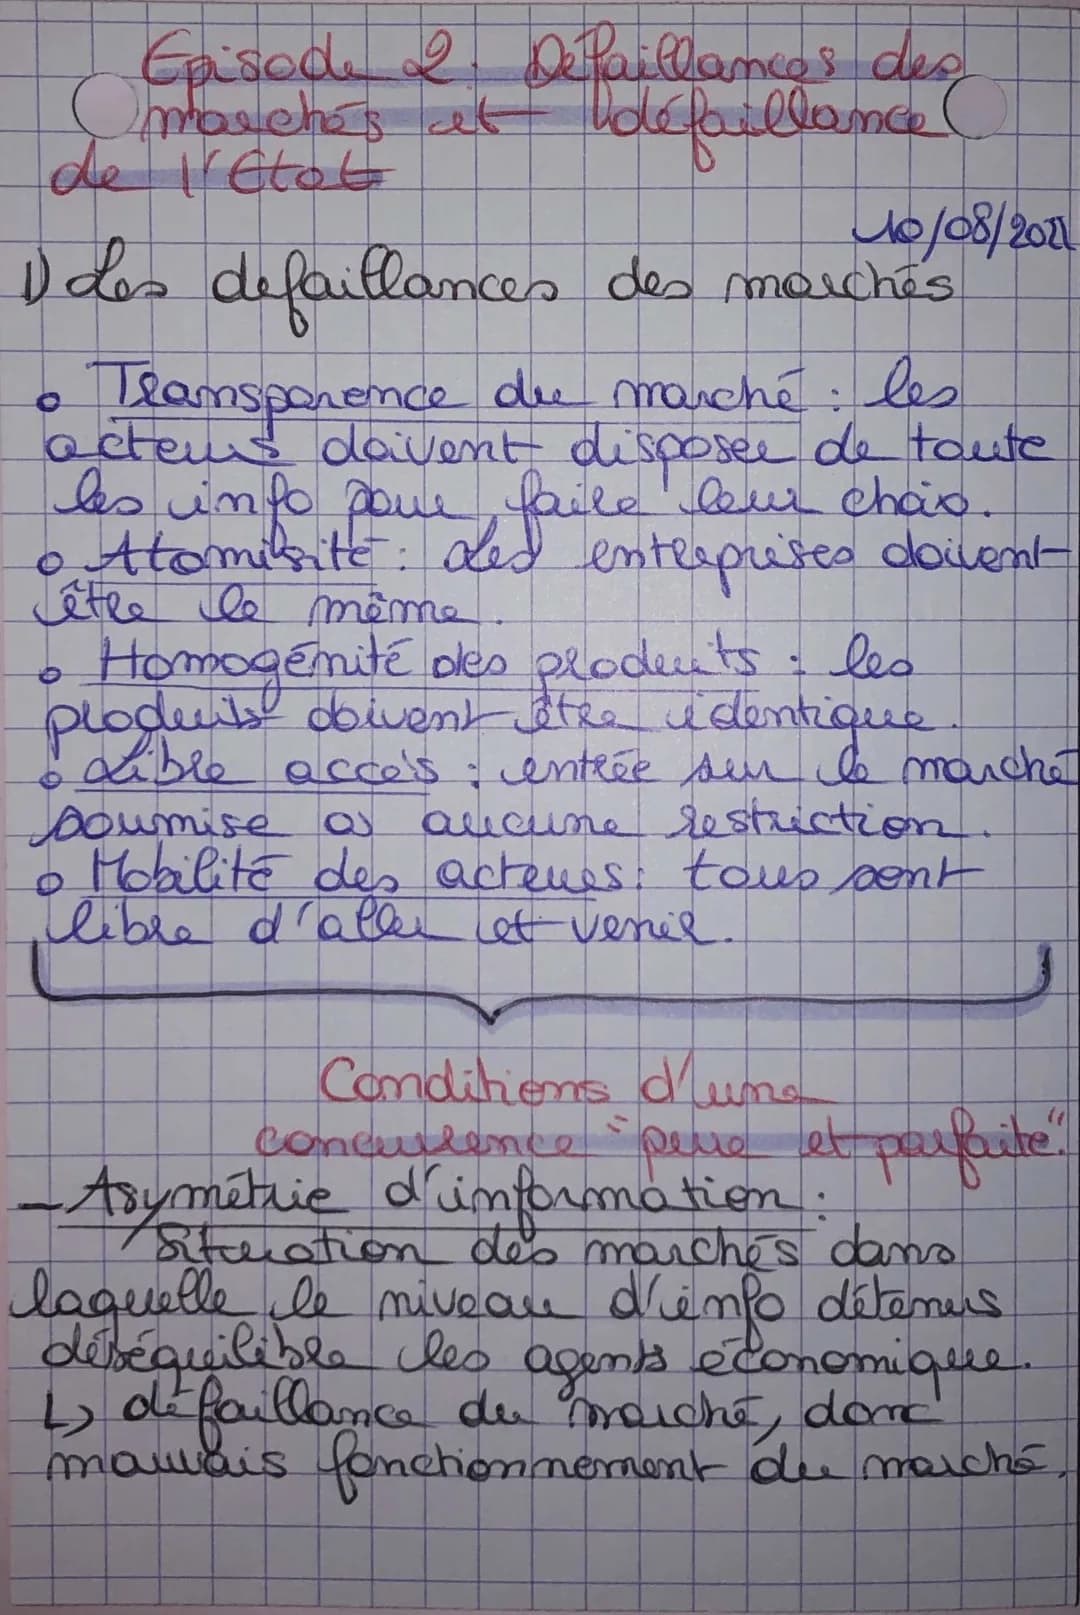 Episode 2. Défaillances des
marchés et défaillance
de l'Etat
10/08/2021
1) Les defaillances des marchés
o Transparence du marché : les
acteurs doivent disposer de toute
les info pour faire leur choix.
o Atomisité : des entreprises doivent
être le même.
o Homogénité des produits : les
produits doivent être identique.
o Libre accès : entrée sur le marché
soumise à aucune restriction.
o Mobilité des acteurs : tous sont
libre d'aller et venir.
Conditions d'une
concurrence "pure et parfaite".
- Asymétrie d'information :
Situation des marchés dans
laquelle le niveau d'info détenus
déséquilibre les agents économique.
↳ défaillance du marché, donc
mauvais fonctionnement du marché.